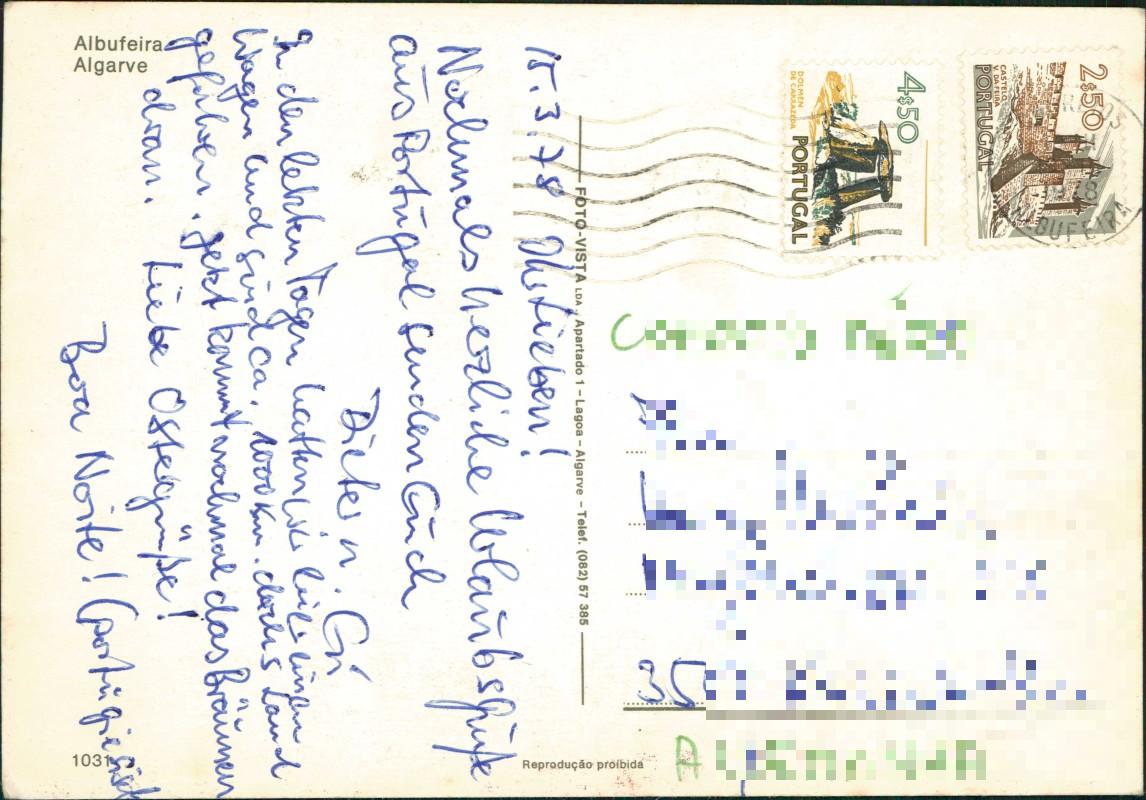 Albufeira
Algarve
15.3.78 Ihr Lieben!
Nochmals herzliche Urlaubsgrüße
aus Portugal senden Euch
Dieter u.
In den letzten Tagen hatten wir hier einen
Wagen und sind ca. 1000 km durchs Land
gefahren. Jetzt kommt nochmal das Bräunen
dran. Liebe Ostergrüße!
Boa Noite! (portugiesisch
1031
FOTO-VISTA LDA - Apartado 1 - Lagoa - Algarve - Telef. (082) 57 385
Reprodução proibida
4$50
DOLMEN
DE CARRAZEDA
PORTUGAL
2$50
CASTELO
V. DA FEIRA
PORTUGAL
ALBUFEIRA